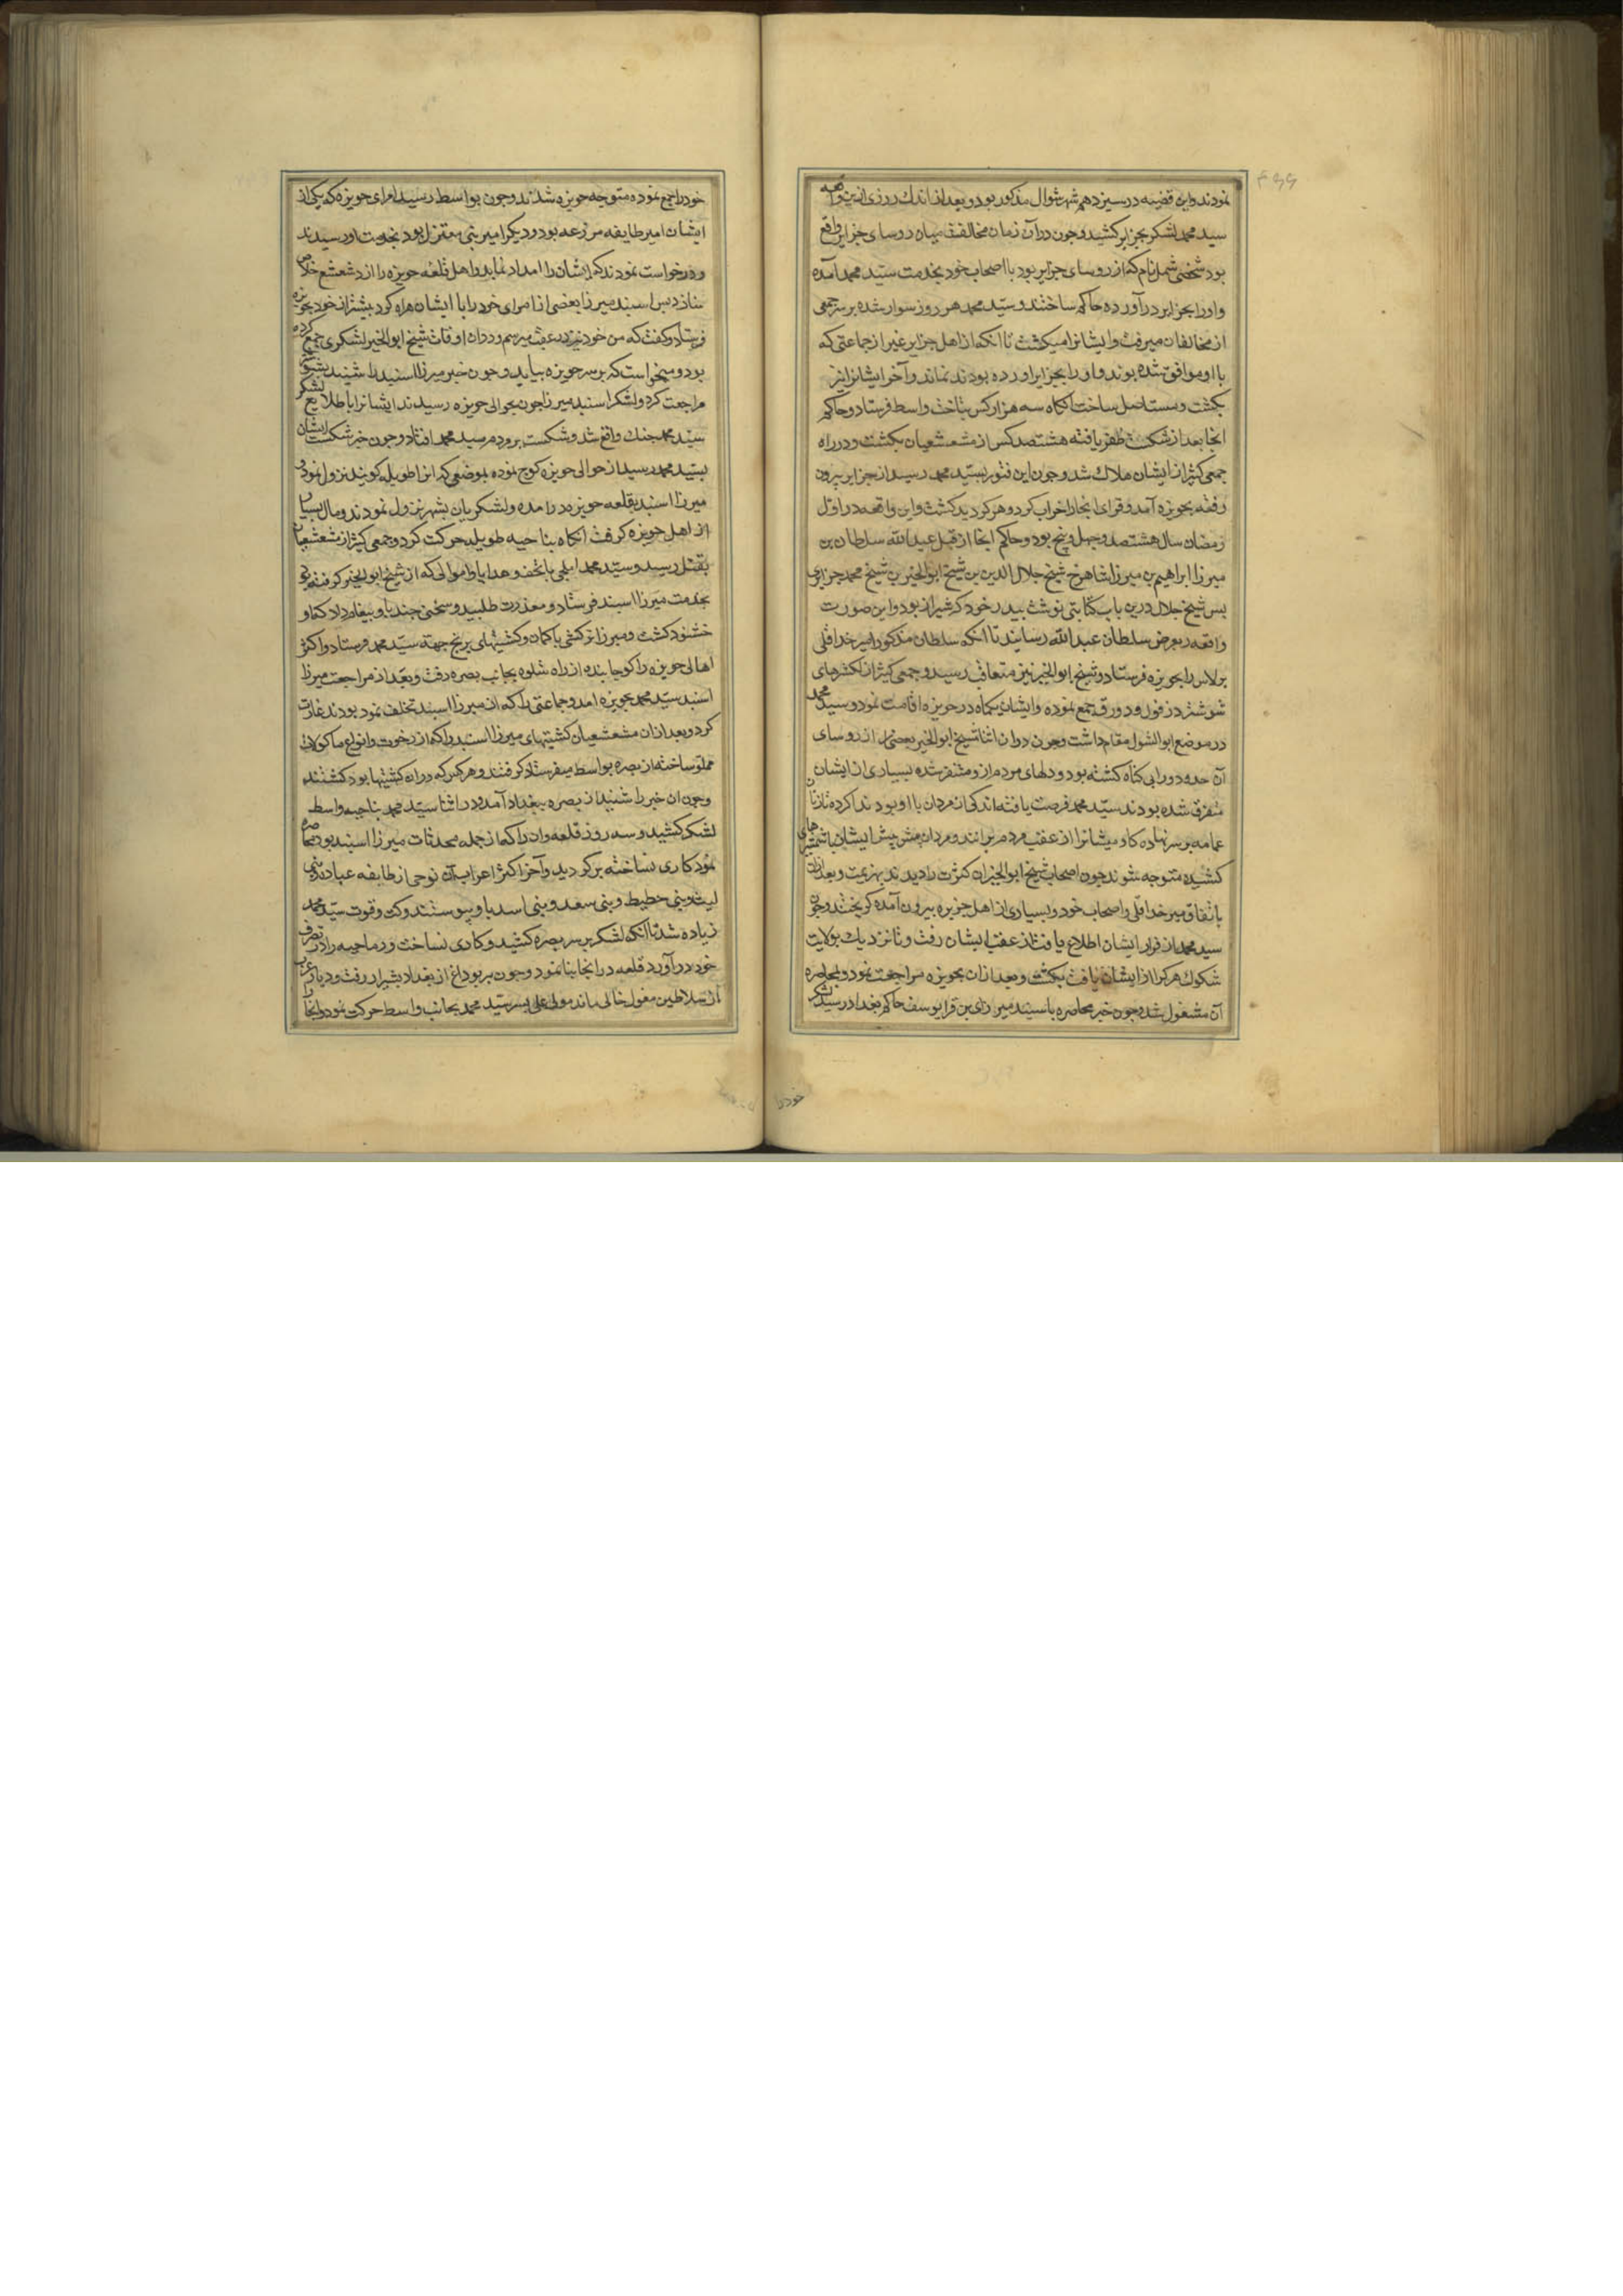 نمودند و این قضیه در سیزدهم شهر شوال مذکور بود و بعد از اندک روزی ازین واقعه
سید محمد لشکر بجزایر کشید و چون در آن زمان مخالفت میان روسای جزایر واقع
بود شخصی شمل نام که از روسای جزایر بود با اصحاب خود بخدمت سید محمد آمده
و او را بجزایر در آورده حاکم ساختند و سید محمد هر روز سوار شده بر سر جمعی
از مخالفان میرفت و ایشانرا میکشت تا آنکه از اهل جزایر غیر از جماعتی که
با او موافق شده بودند و او را بجزایر اورده بودند نماند و آخر ایشانرا نیز
بکشت و مستاصل ساخت آنکاه سه هزار کس بتاخت واسط فرستاد و حاکم
انجا بعد از شکست ظفر یافته هشتصد کس از مشعشعیان بکشت و در راه
جمعی کثیر از ایشان هلاک شد و چون این فتور بسید محمد رسید از جزایر بیرون
رفته بحویزه آمد و قرای انجا را خراب کرد و هر کرا دید کشت و این واقعه در اول
رمضان سال هشتصد و چهل و پنج بود و حاکم انجا از قبل عبد الله سلطان بن
میرزا ابراهیم بن میرزا شاهرخ شیخ جلال الدین بن شیخ ابو الخیر بن شیخ محمد جزری
بس شیخ جلال درین باب کتابتی نوشت ببدر خود که شیراز بود و این صورت
واقعه را بعرض سلطان عبد الله رسانید تا آنکه سلطان مذکور امیر خدا قلی
برلاس را بحویزه فرستاد و شیخ ابو الخیر نیز متعاقب رسید و جمعی کثیر از لشکرهای
شوشتر و دزفول و دورق جمع نموده و ایشان یکماه در حویزه اقامت نمود و سید محمد
در موضع ابو الشول مقام داشت و چون در ان اثنا شیخ ابو الخیر بعضی را از روسای
آن حدود را بی کناه کشته بود و دلهای مردم از و متنفر شده بسیاری از ایشان
متفرق شده بودند سید محمد فرصت یافته اندکی از مردان با او بودند امر کرده تا زنان
عمامه بر سر نهاده کاومیشانرا از عقب مردم برانند و مردان پیش پیش ایشان با شمشیرهای
کشیده متوجه شوند چون اصحاب شیخ ابو الخیر ان کثرت را دیدند بهزیمت و بعد ازان
باتفاق میر خدا قلی و اصحاب خود و بسیاری از اهل جزیره بیرون آمده کریختند و چون
سید محمد از فرار ایشان اطلاع یافت از عقب ایشان رفت و تا نزدیک بولایت
شکوک هر کرا از ایشان یافت بکشت و بعد ازان بحویزه مراجعت نمود و بمحاصره
آن مشغول شد و چون خبر محاصره باسبند میرزای بن قرا یوسف حاکم بغداد رسید لشکر
خود را
خود را جمع نموده متوجه حویزه شدند و چون بواسط رسید امرای حویزه که یکی از
ایشان امیر طایفه مزرعه بود و دیکر امیر بنی معتزل بود بخدمت او رسیدند
و درخواست نمودند که ایشان را امداد نماید و اهل قلعه حویزه را از دشعشع خلاص
سازد بس اسبند میرزا بعضی از امرای خود را با ایشان همراه کرد بیشتر از خود بحویزه
فرستاد و کفت که من خود نیز در عقب میرسم و در ان اوقات شیخ ابو الخیر لشکری جمع کرده
بود و میخواست که بر سر حویزه بیاید و چون خبر میرزا اسبند را شنید بشوشتر
مراجعت کرد و لشکر اسبند میرزا چون بحوالی حویزه رسیدند ایشانرا با طلایع لشکر
سید محمد جنک واقع شد و شکست بر مردم سید محمد افتاد و چون خبر شکست ایشان
بسید محمد رسید از حوالی حویزه کوچ نموده بموضعی که انرا طویله کویند نزول نمود و
میرزا اسبند بقلعه حویزه در امده و لشکریان بشهر نزول نمودند و مال بسیار
از اهل حویزه کرفت انکاه بناحیه طویله حرکت کرد و جمعی کثیر از مشعشعیان
بقتل رسید و سید محمد ایلچی با تحف و هدایا و اموالی که از شیخ ابو الخیر کرفته بود
بخدمت میرزا اسبند فرستاد و معذرت طلبید و سخنی چند باو بیغام داد که او
خشنود کشت و میرزا ترکشی با کمان و کشتیهای برنج جهة سید محمد فرستاد و اکثر
اهالی حویزه را کوچانیده از راه شلوه بجانب بصره رفت و بعد از مراجعت میرزا
اسبند سید محمد بحویزه امد و جماعتی را که از میرزا اسبند تخلف نمود بودند غارت
کرد و بعد ازان مشعشعیان کشتیهای میرزا اسبند را که از رخوت و انواع ماکولات
مملو ساخته از بصره بواسط میفرستاد کرفتند و هر کس که در ان کشتیها بود کشتند
و چون ان خبر را شنید از بصره ببغداد آمد و در اثنا سید محمد بناحیه واسط
لشکر کشید و سه روز قلعه وان را که از جمله محدثات میرزا اسبند بود محاصره
نمود کاری نساخته برکردید و آخر اکثر اعراب آن نوحی از طایفه عباد و بنی
لیث و بنی حطیط و بنی سعد و بنی اسد باو پیوستند و کت و قوت سید محمد
زیاده شد تا آنکه لشکر بر سر بصره کشید و کاری نساخت و رماحیه را در تصرف
خود در آورد قلعه در انجا بنا نمود و چون بیر بوداغ از بغداد بشیراز رفت و دیار عرب
از سلاطین مغول خالی ماند مولی علی بسر سید محمد بجانب واسط حرکت نمود و انجا را